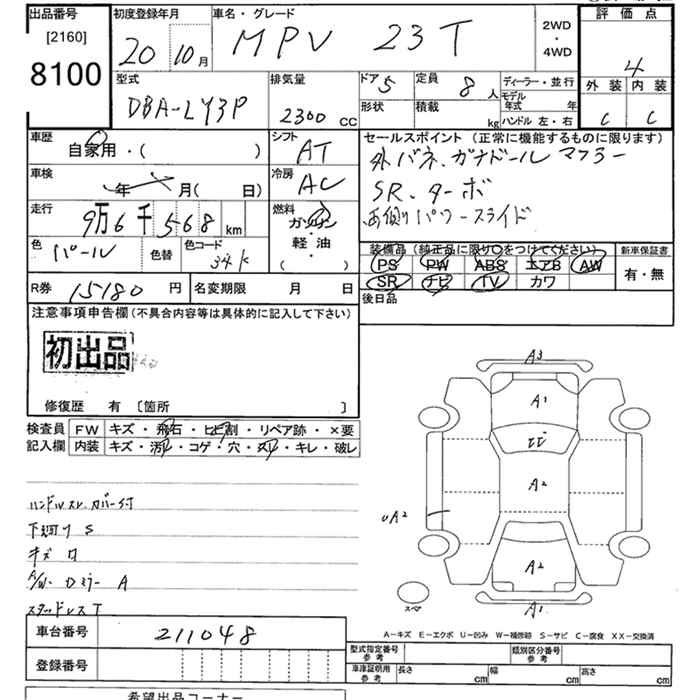 出品番号
[2160]
8100
初度登録年月
20 10月
車名・グレード
MPV 23T
2WD
・
4WD
評価点
4
外装 内装
C C
型式
DBA-LY3P
排気量
2300 CC
ドア 5
形状
定員 8人
積載 kg
ディーラー・並行
モデル
年式 年
ハンドル 左・右
車歴
自家用・( )
シフト
AT
車検
年 月( 日)
冷房
AC
走行
9万6千568 km
燃料
ガソリン
・
軽・油
( )
色
パール
色替
色コード
34K
セールスポイント (正常に機能するものに限ります)
外バネ、ガナドールマフラー
SR、ターボ
両側パワースライド
装備品 (純正品に限り○をつけてください)
PS PW ABS エアB AW
SR ナビ TV カワ
新車保証書
有・無
R券 15180 円
名変期限 月 日
後日品
注意事項申告欄 (不具合内容等は具体的に記入して下さい)
初出品
修復歴 有 〔箇所 〕
検査員
記入欄
FW キズ・飛石・ヒビ割・リペア跡・×要
内装 キズ・汚れ・コゲ・穴・スレ・キレ・破レ
ハンドルスレ、カバー付
下廻り S
キズ
A
スタッドレス T
A3
A1
A2
UA2
A2
A1
スペア
車台番号 211048
登録番号
A-キズ E-エクボ U-凹み W-補修跡 S-サビ C-腐食 XX-交換済
型式指定番号
参考
類別区分番号
参考
車庫証明用
参考
長さ cm 幅 cm 高さ cm
希望出品コーナー